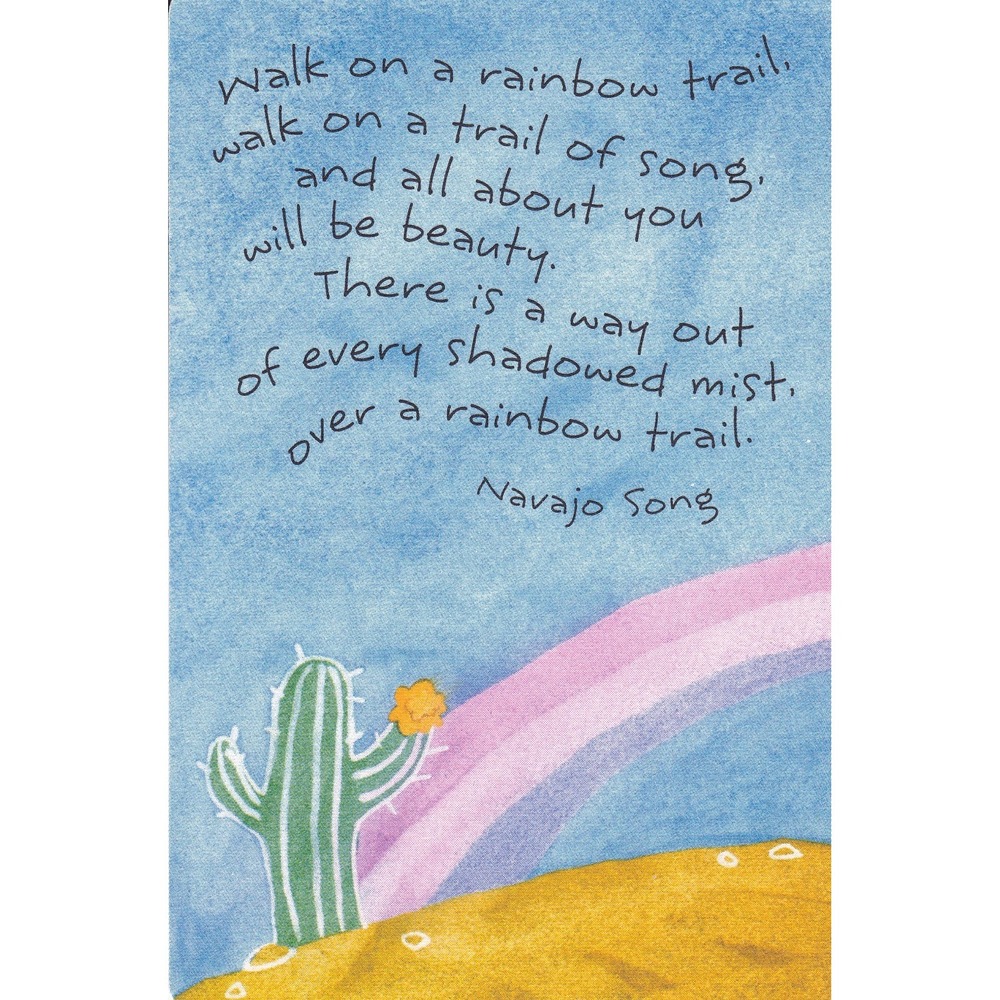 Walk on a rainbow trail,
walk on a trail of song,
and all about you
will be beauty.
There is a way out
of every shadowed mist,
over a rainbow trail.
Navajo Song